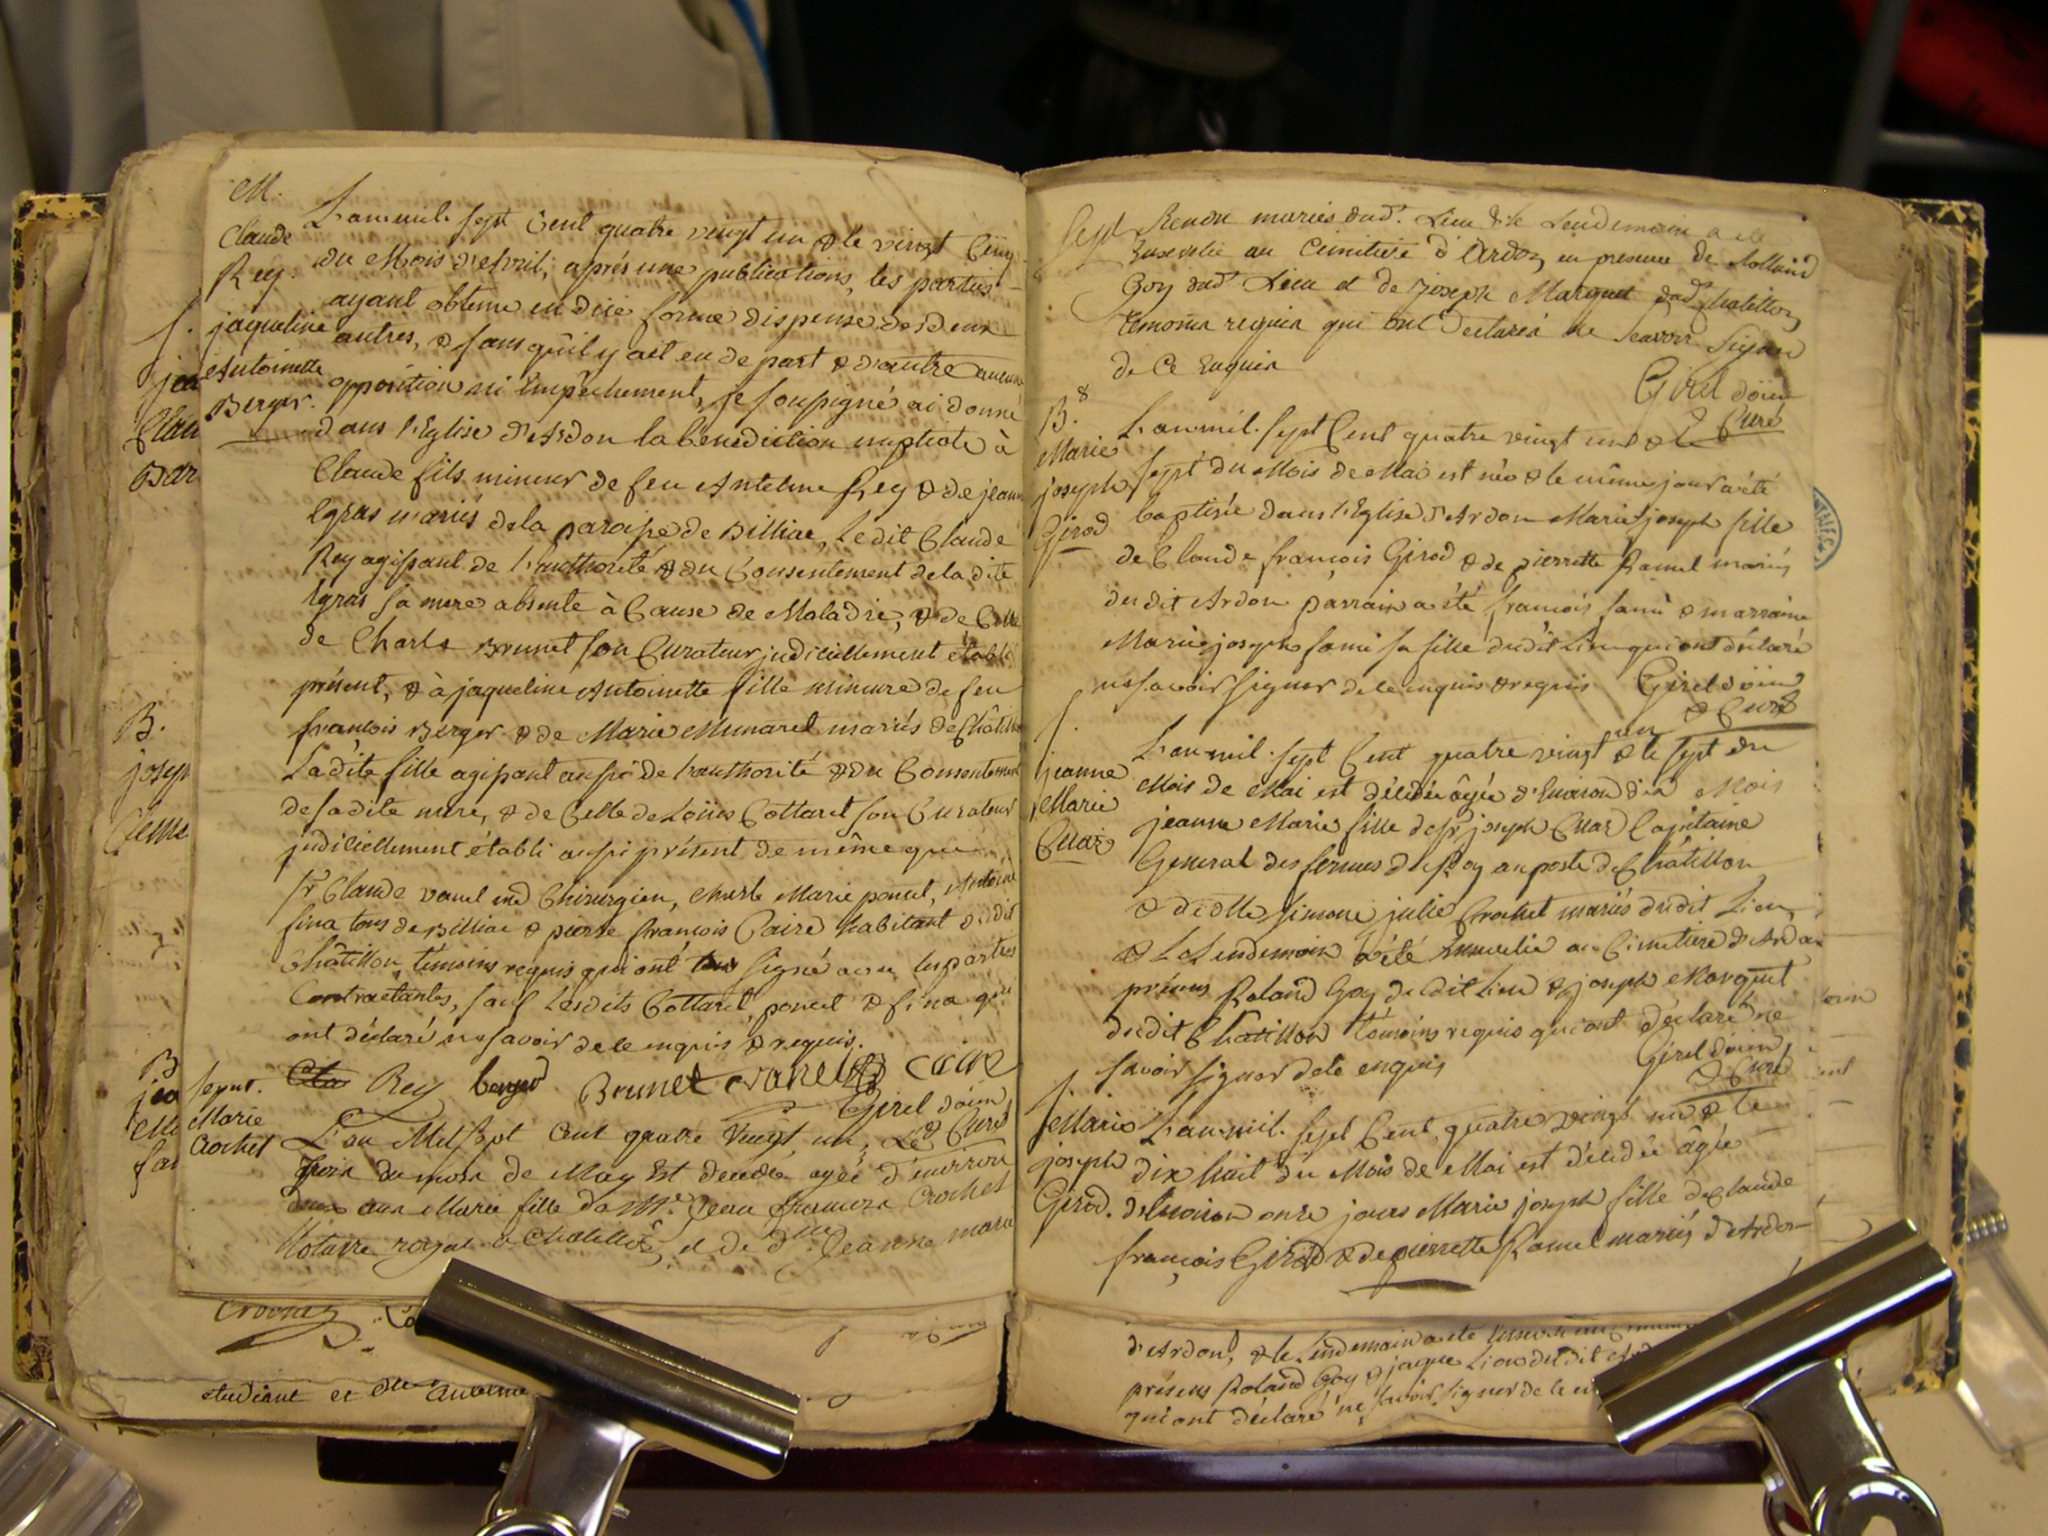 M.
Claude
Rey.
jaqueline
Antoinette
Berger.
L'an mil sept Cent quatre vingt un & le vingt Cinq
du Mois d'Avril, après une publications, les parties
ayant obtenu en düe forme dispense des deux
autres, & sans qu'il y ait eu de part & d'autre aucune
opposition ni Empêchement, je soussigné ai donné
dans l'Eglise d'Ardon la benediction nuptiale à
Claude fils mineur de feu Antelme Rey & de jeanne
gras mariés de la paroisse de Billiac, Ledit Claude
Rey agissant de l'authorité & du Consentement de la dite
gras sa mere absente à Cause de Maladie, & de Celle
de Charle Brunet son Curateur judiciellement établi
présent, & à jaqueline Antoinette fille mineure de feu
françois Berger & de Marie Munaret mariés de Châtillon
Ladite fille agissant aussi de l'authorité & du Consentement
de sadite mere, & de Celle de Loüis Cottaret son Curateur
judiciellement établi aussi présent de même que
Sr Claude vanel md Chirurgien, Charle Marie poncet, Antoine
fina tous de Billiac & pierre françois Caire habitant dudit
Châtillon, témoins requis qui ont signé avec les parties
Contractantes, sauf Lesdits Cottaret, poncet & fina qui
ont déclaré ne savoir de ce enquis & requis.
Rey berger Brunet vanel Caire
Girel doïen
& Curé
sepult.
Marie
Crochet
L'an Mil Sept Cent quatre Vingt un, Le
Troix du moix de May Est decedée agée d'environ
deux ans Marie fille de Me. Jean françois Crochet
Notaire royal a Chatillon, et de dlle Jeanne marie
f.
jea
Clau
Bar
B.
joseph
Cleme
B
jea
Ma
fa
etudiant et dlle
Sept Renou mariés dudt. Lieu & le Lendemain a eté
Ensevelie au Cimitiere d'Ardon, en presence de Rolland
Goy dudt Lieu et de Joseph Marquet dudt Chatillon,
temoins requis qui ont declarés ne Scavoir Signer
de Ce Enquis
Girel doïen
& Curé
B.
Marie
joseph
Girod
L'an mil sept Cent quatre vingt un & le
sept du Mois de Mai est née & le même jour a été
baptisée dans l'Eglise d'Ardon Marie joseph fille
de Claude françois Girod & de pierrette Ramel mariés
dudit Ardon parrain a été françois fami & marraine
Marie joseph fami sa fille dudit Lieu qui ont déclaré
ne savoir signer de ce enquis & requis Girel doïen
& Curé
f.
jeanne
Marie
Cuar
L'an mil sept Cent quatre vingt un & le sept du
Mois de Mai est décédée âgée d'Environ dix Mois
jeanne Marie fille de Sr joseph Cuar Capitaine
General des fermes du Roy au poste de Châtillon
& de dlle simone julie Crochet mariés dudit Lieu,
& le Lendemain a été Ensevelie au Cimetiere d'Ardon
présens Roland Goy dudit Lieu & joseph Marquet
dudit Chatillon témoins requis qui ont déclaré ne
savoir signer de ce enquis
Girel doïen
& Curé
f.
Marie
joseph
Girod.
L'an mil sept Cent quatre vingt un & le
dix huit du Mois de Mai est décédée âgée
d'Environ onze jours Marie joseph fille de Claude
françois Girod & de pierrette Ramel mariés d'Ardon
d'Ardon, & le Lendemain a été
présens Roland Goy & jaque Lion dudit
qui ont déclaré ne savoir signer de ce